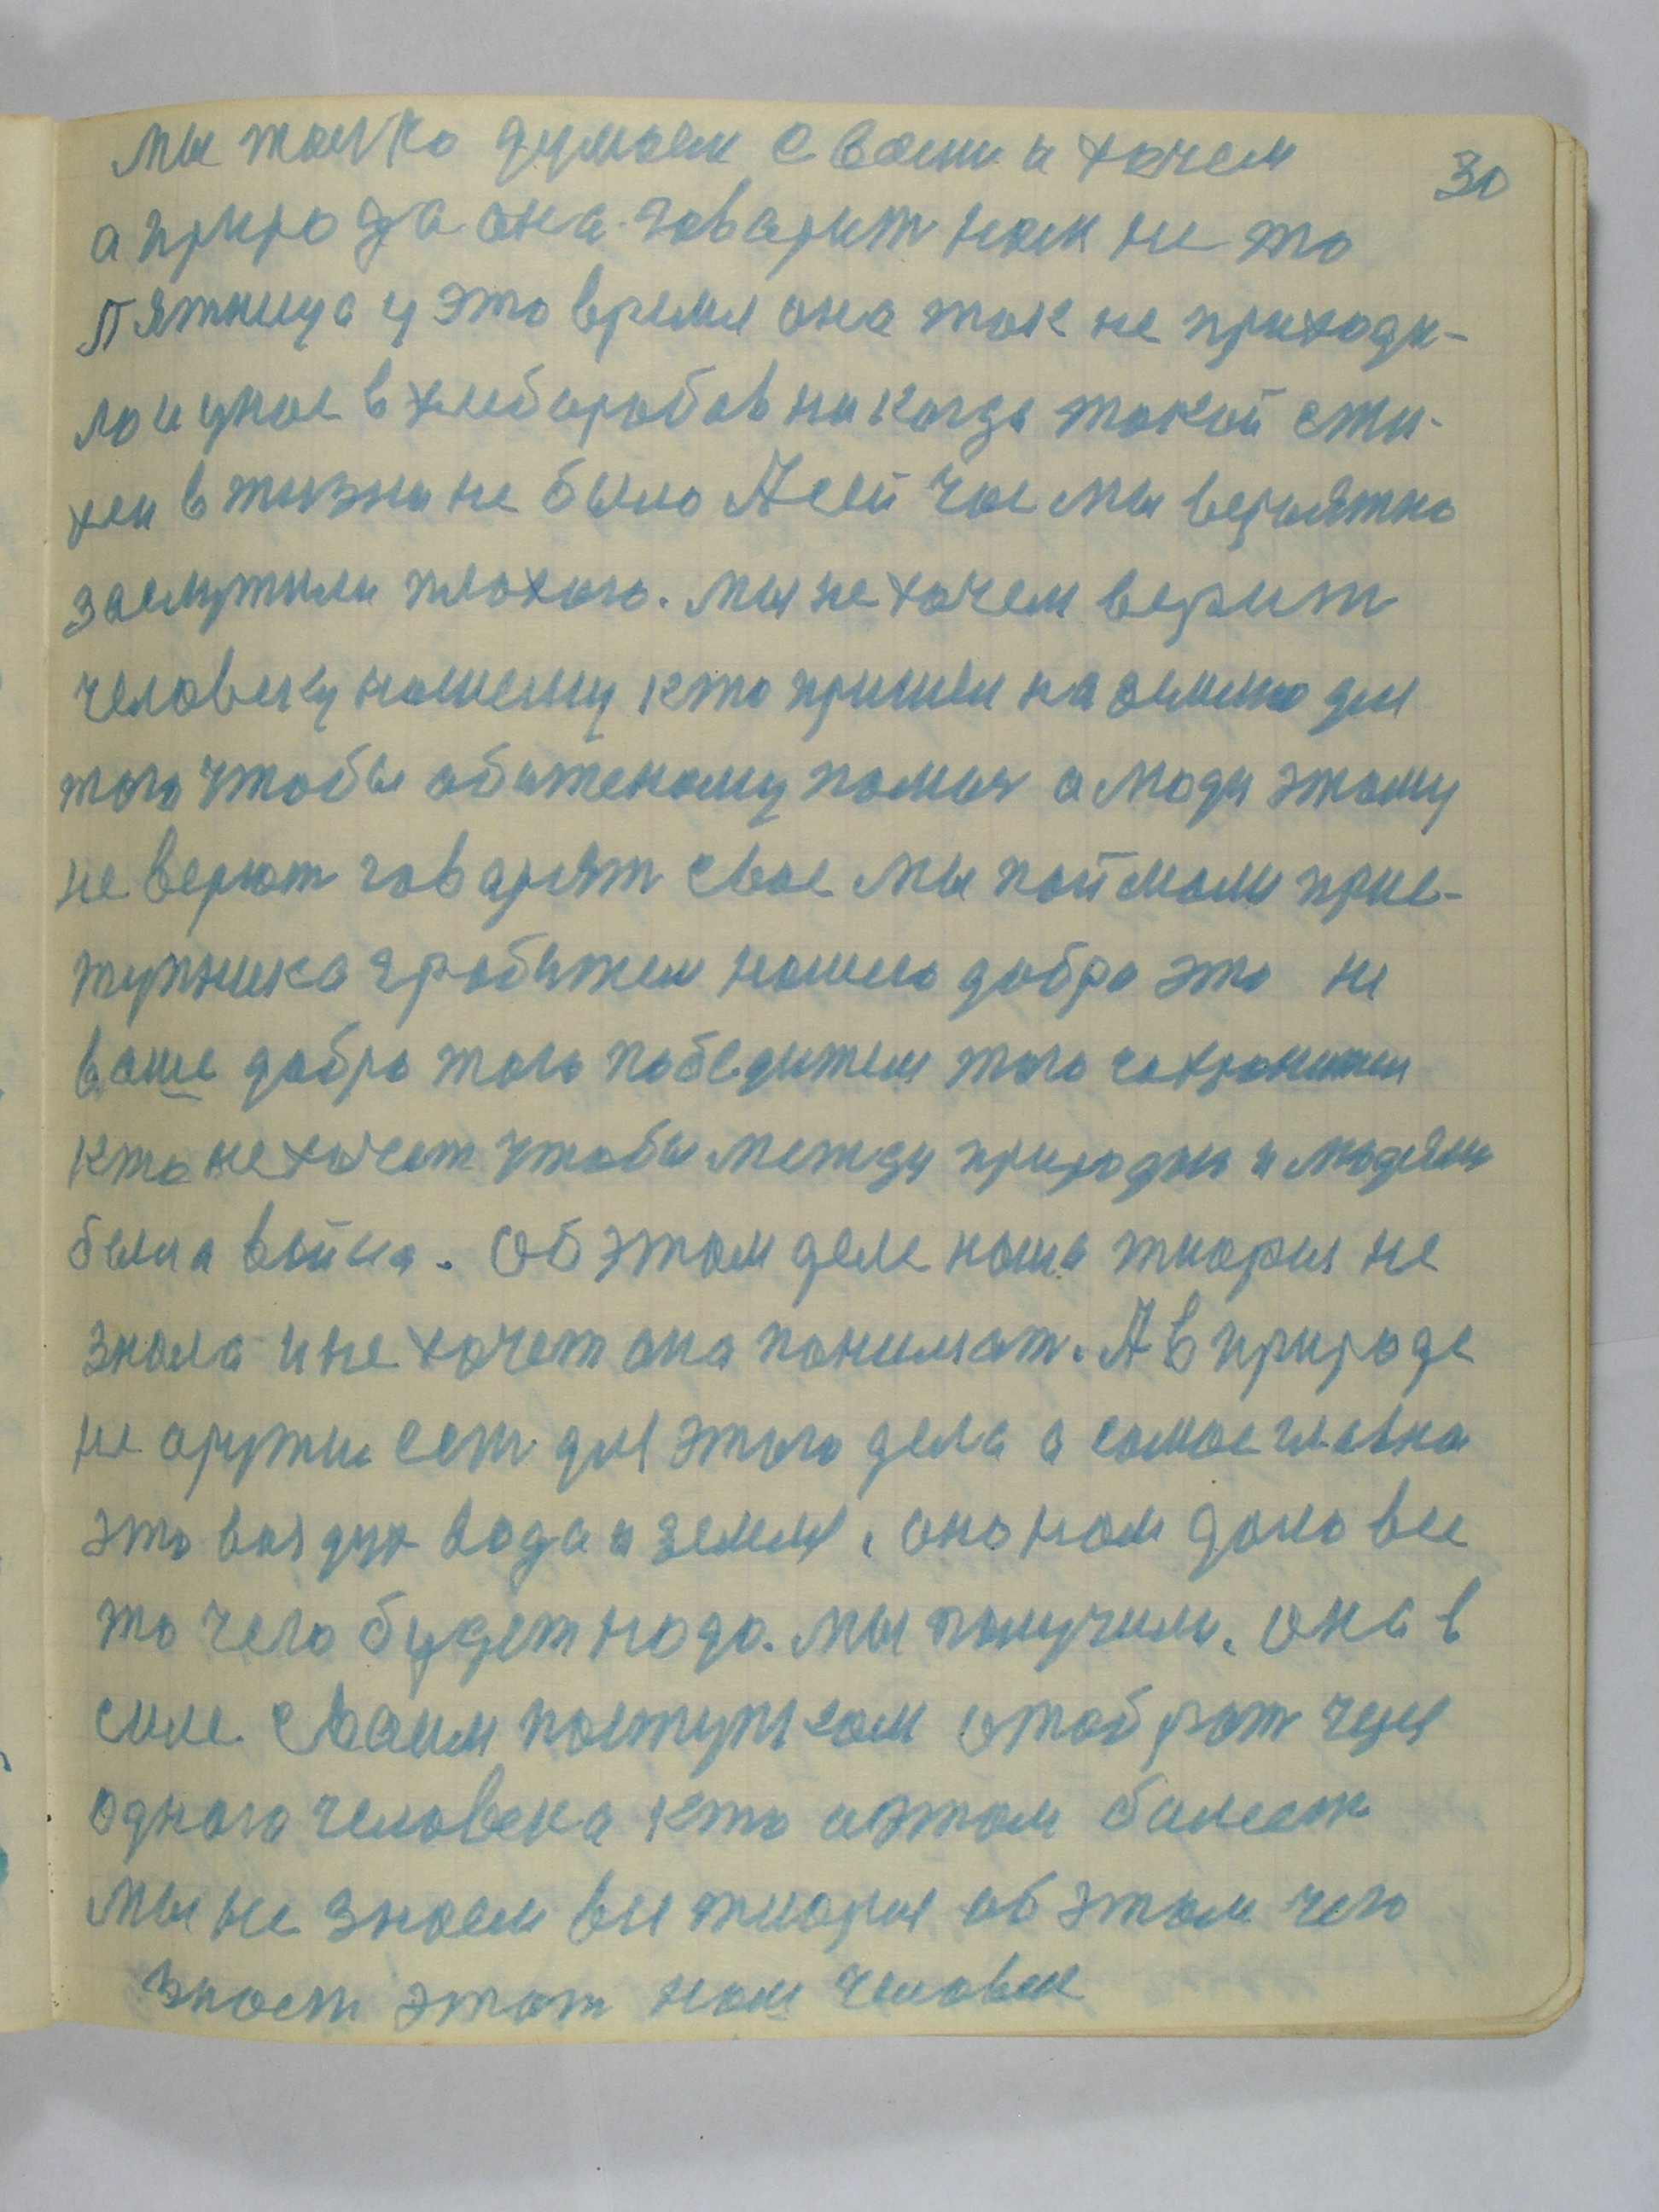 мы толко думаем с вами и хочем
30
а природа она говарит нам не то
Пятница у это время она так не приходи-
ла и у нас в хлебаробов никогда такой сти-
хеи в жизни не было А сей час мы вероятно
заслужили плохого. мы не хочем верит
человеку нашему кто пришел на землю для
того чтобы обиженому помоч а люди этому
не верют говарят свое мы поймали прис-
тупника грабител нашего добра это не
ваше добро того победителя того
кто не хочет чтобы между природы и людями
была война. Об этом деле наша тиория не
знала и не хочет она понимат. А в природе
не аружие ест для этого дела а самое главное
это воздух вода и земля, оно нам дало все
то чего будет надо. мы получим, она в
силе сваим поступком отобрат чериз
одного человека кто аэтом
мы не знаем вся тиория об этом чего
знает этот наш человек